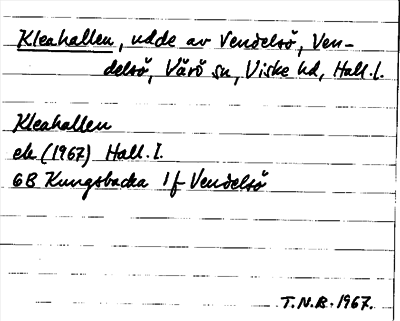 Kleahallen, udde av Vendelsö, Ven-
delsö, Värö sn, Viske hd, Hall. l.
Kleahallen
ek (1967) Hall. I.
6B Kungsbacka 1f Vendelsö
T.N.B. 1967.